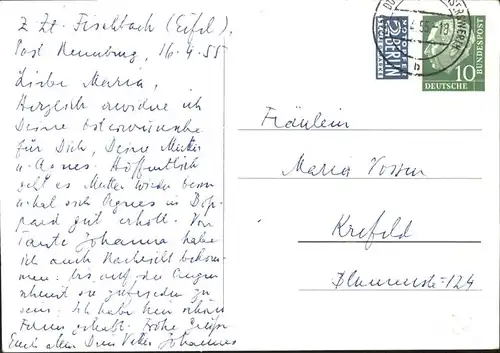 z Zt. Fischbach (Eifel),
Post 16.4.55
Liebe Maria,
Herzlich erwidere ich
Deine Osterwünsche
für Dich, Deine Mutter
u. Agnes. Hoffentlich
geht es Mutter wieder besser
u. hat sich Agnes in
gut erholt. Von
Tante Johanna habe
ich auch Nachricht bekom-
men: bis auf die Augen
scheint sie zufrieden zu
sein. Ich habe hier schöne
Ferien gehabt. Frohe Grüße
Euch allen Dein Vetter Johannes
2
NOTOPFER
BERLIN
STEUERMARKE
b
10
DEUTSCHE
BUNDESPOST
Fräulein
Maria Vossen
Krefeld
Blumenstr. 124